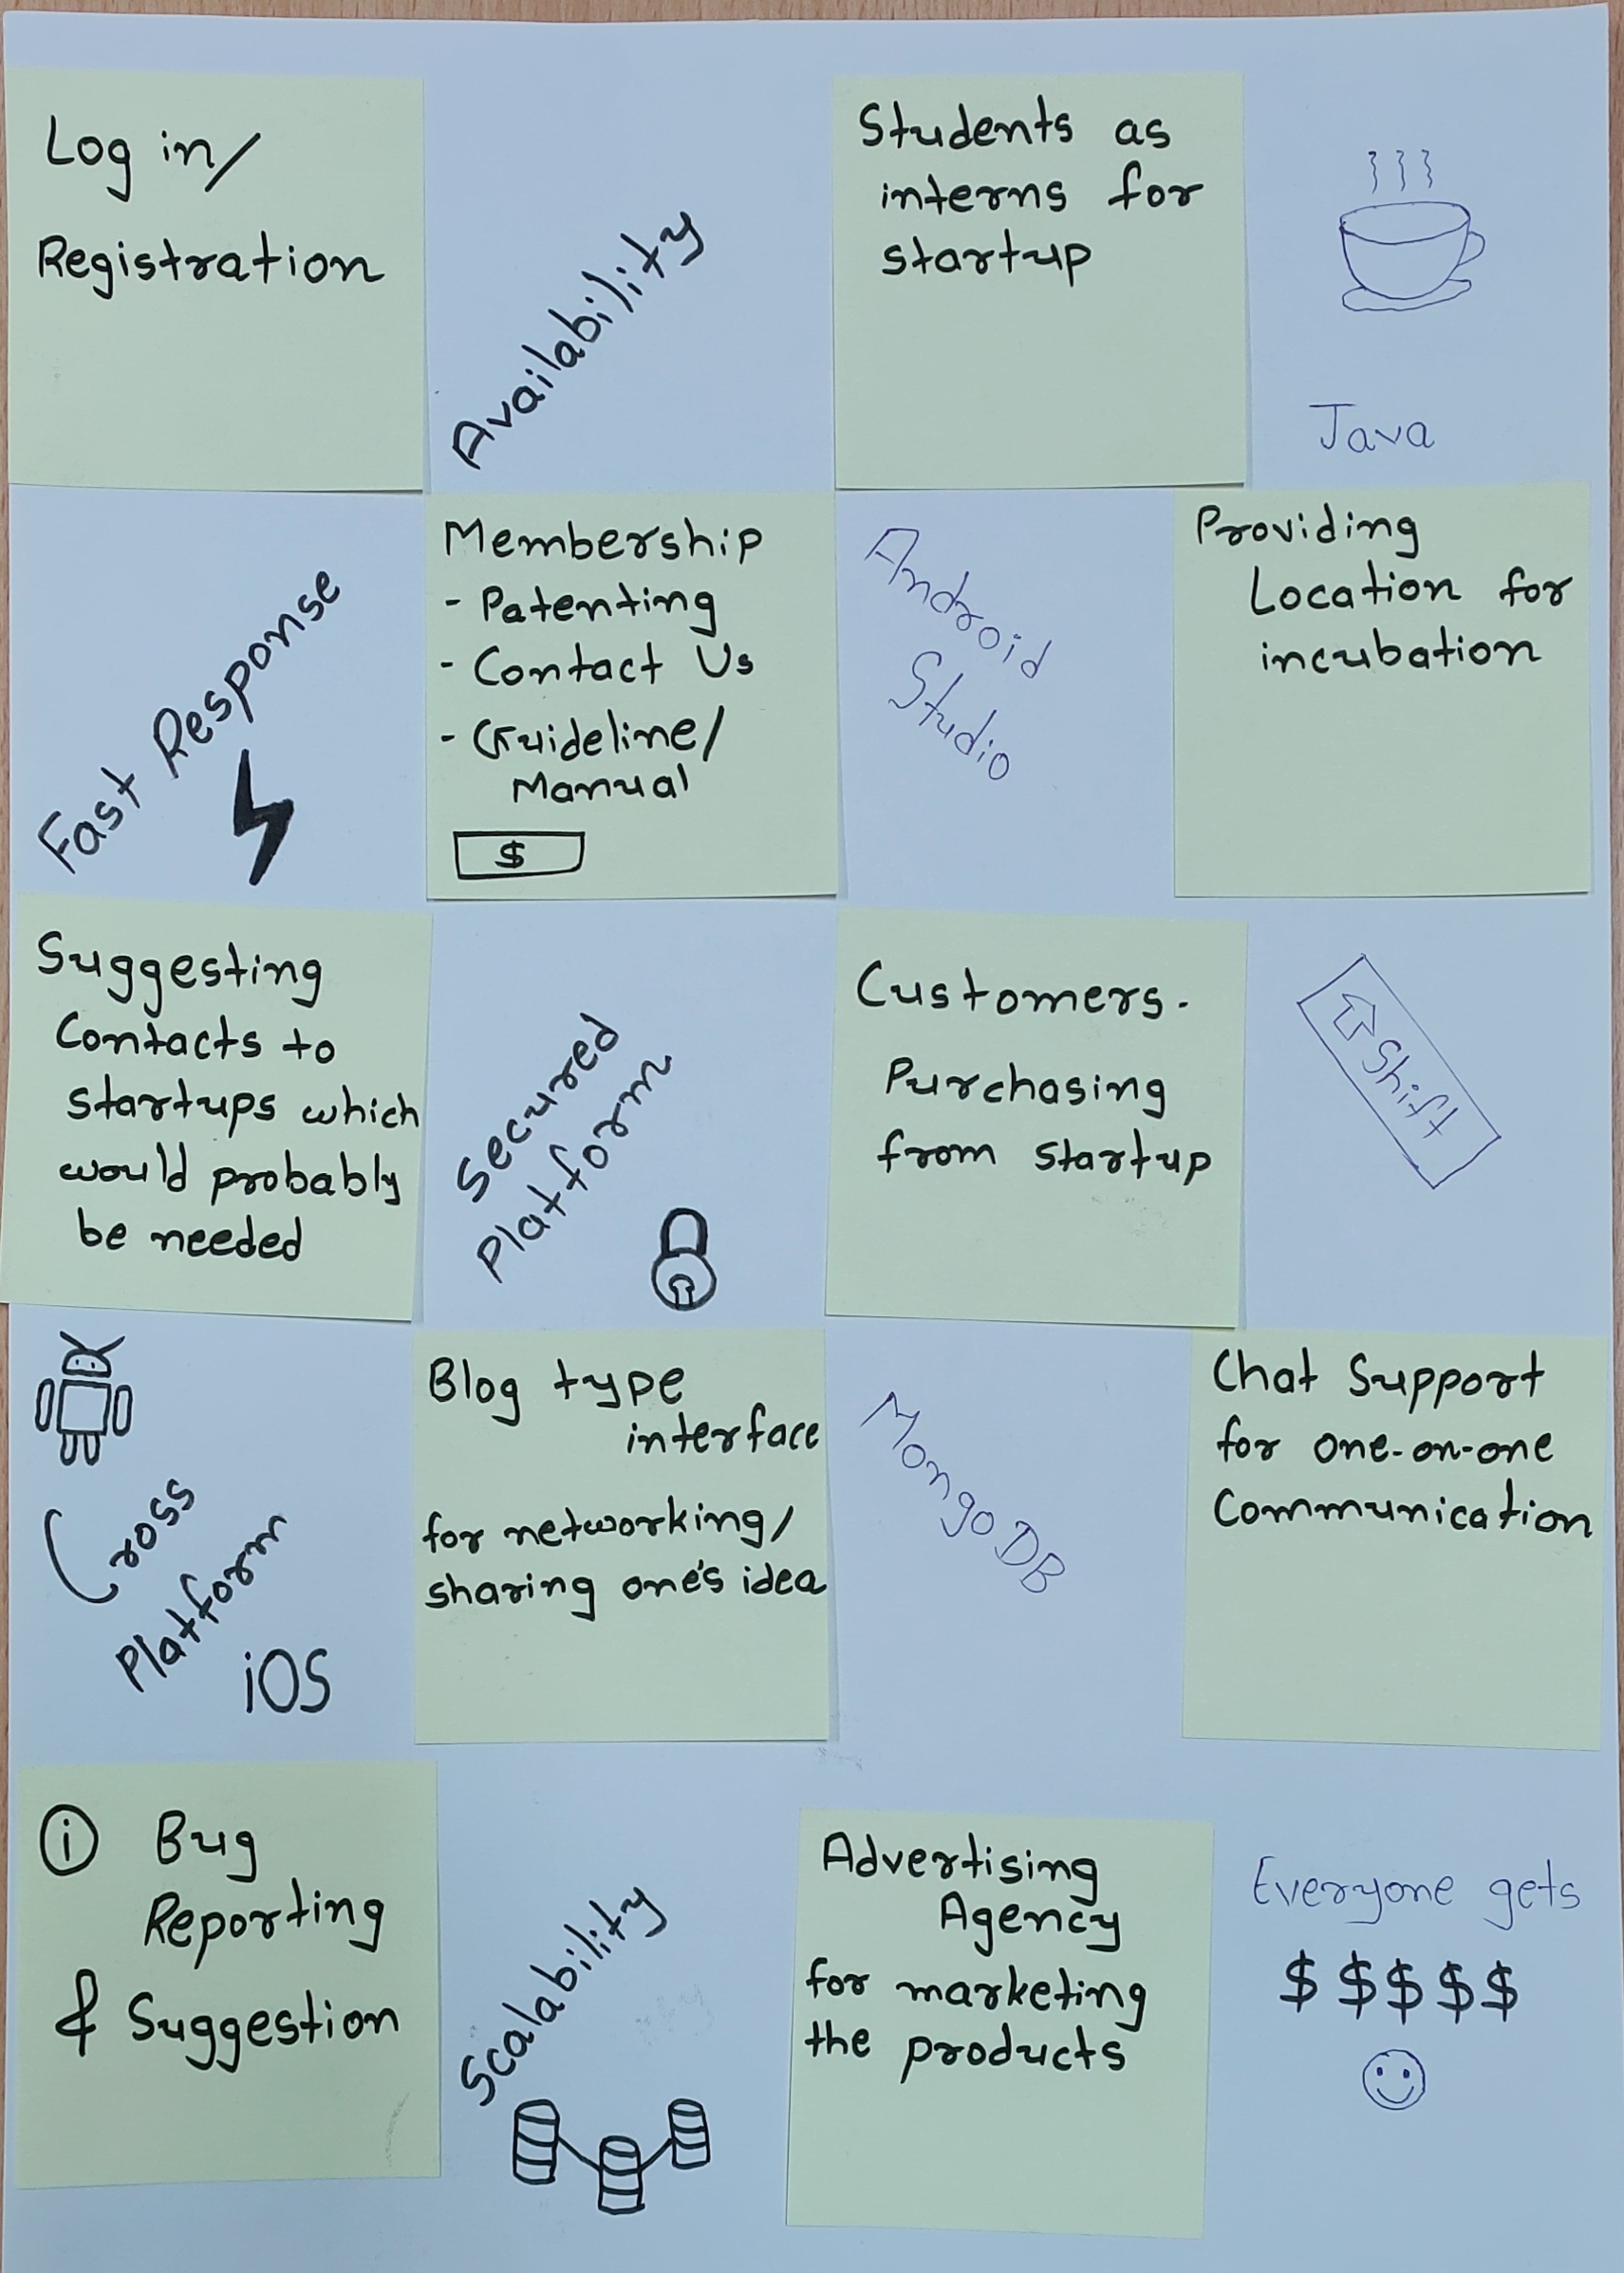 Log in/
Registration
Availability
Students as
interns for
startup
Java
Fast Response
Membership
- Patenting
- Contact Us
- Guideline/
Manual
$
Android
Studio
Providing
Location for
incubation
Suggesting
Contacts to
startups which
would probably
be needed
Secured
Platform
Customers.
Purchasing
from startup
Shift
Cross
Platform
iOS
Blog type
interface
for networking/
sharing one's idea
MongoDB
Chat Support
for one-on-one
Communication
i Bug
Reporting
& Suggestion
Scalability
Advertising
Agency
for marketing
the products
Everyone gets
$ $ $ $ $